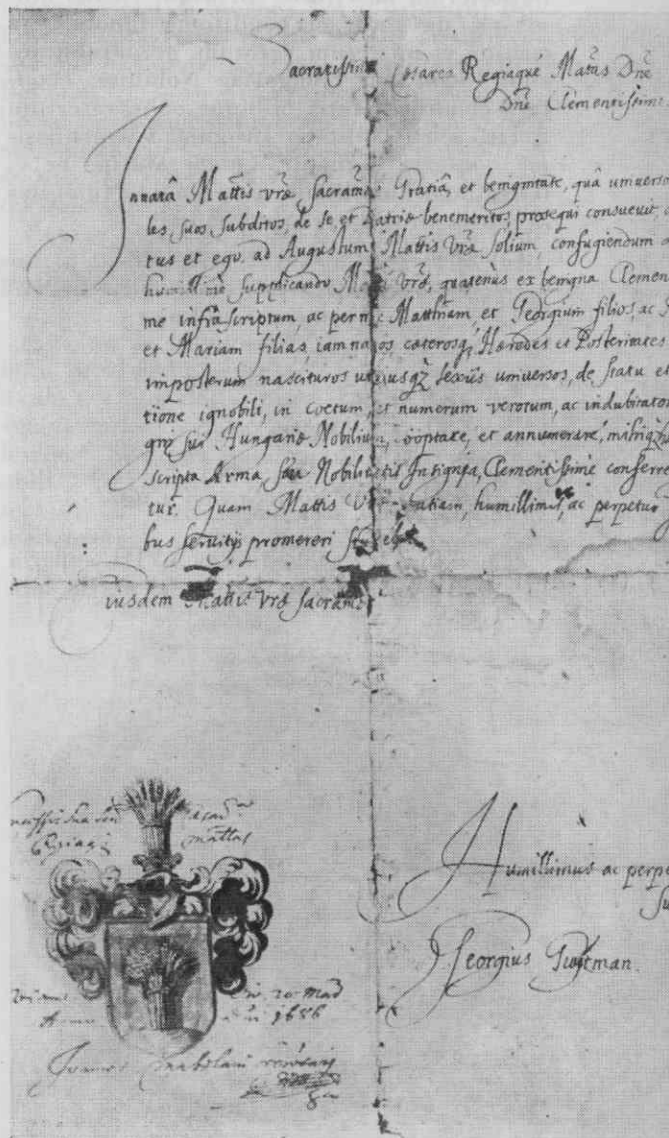 Sacratissima Cæsarea Regiaqué Mattas Dne
Dne Clementissime.
Innatâ Mattis vræ, Sacramæ Gratiâ, et benignitate, quâ universo
les, suos, subditos, de se et Patriæ benemeritos, prosequi consuevit,
tus et ego, ad Augustum Mattis Vræ solium, confugiendum
humillimè supplicando Matti Vræ, quatenus ex benigna Clemen
me infra scriptum, ac per me Matthiam, et Georgium filios, ac
et Mariam filias, iam natos, cæterosq; Hæredes et Posteritates
imposterum nascituros utriusqz sexûs universos, de statu et
tione ignobili, in coetum, et numerum verorum, ac indubitator
gni sui Hungariæ Nobilium, cooptare, et annumerare, mihiqz
scripta Arma, seu Nobilitatis Insignia, Clementissimè conferre
tur. Quam Mattis Vræ Gratiam, humillimis, ac perpetuis
bus servitijs promereri
iusdem Mattis Vræ Sacramæ
Humillimus ac perpe
su
Georgius
mattas
in 20 Maij
Anno 1686
Joannes